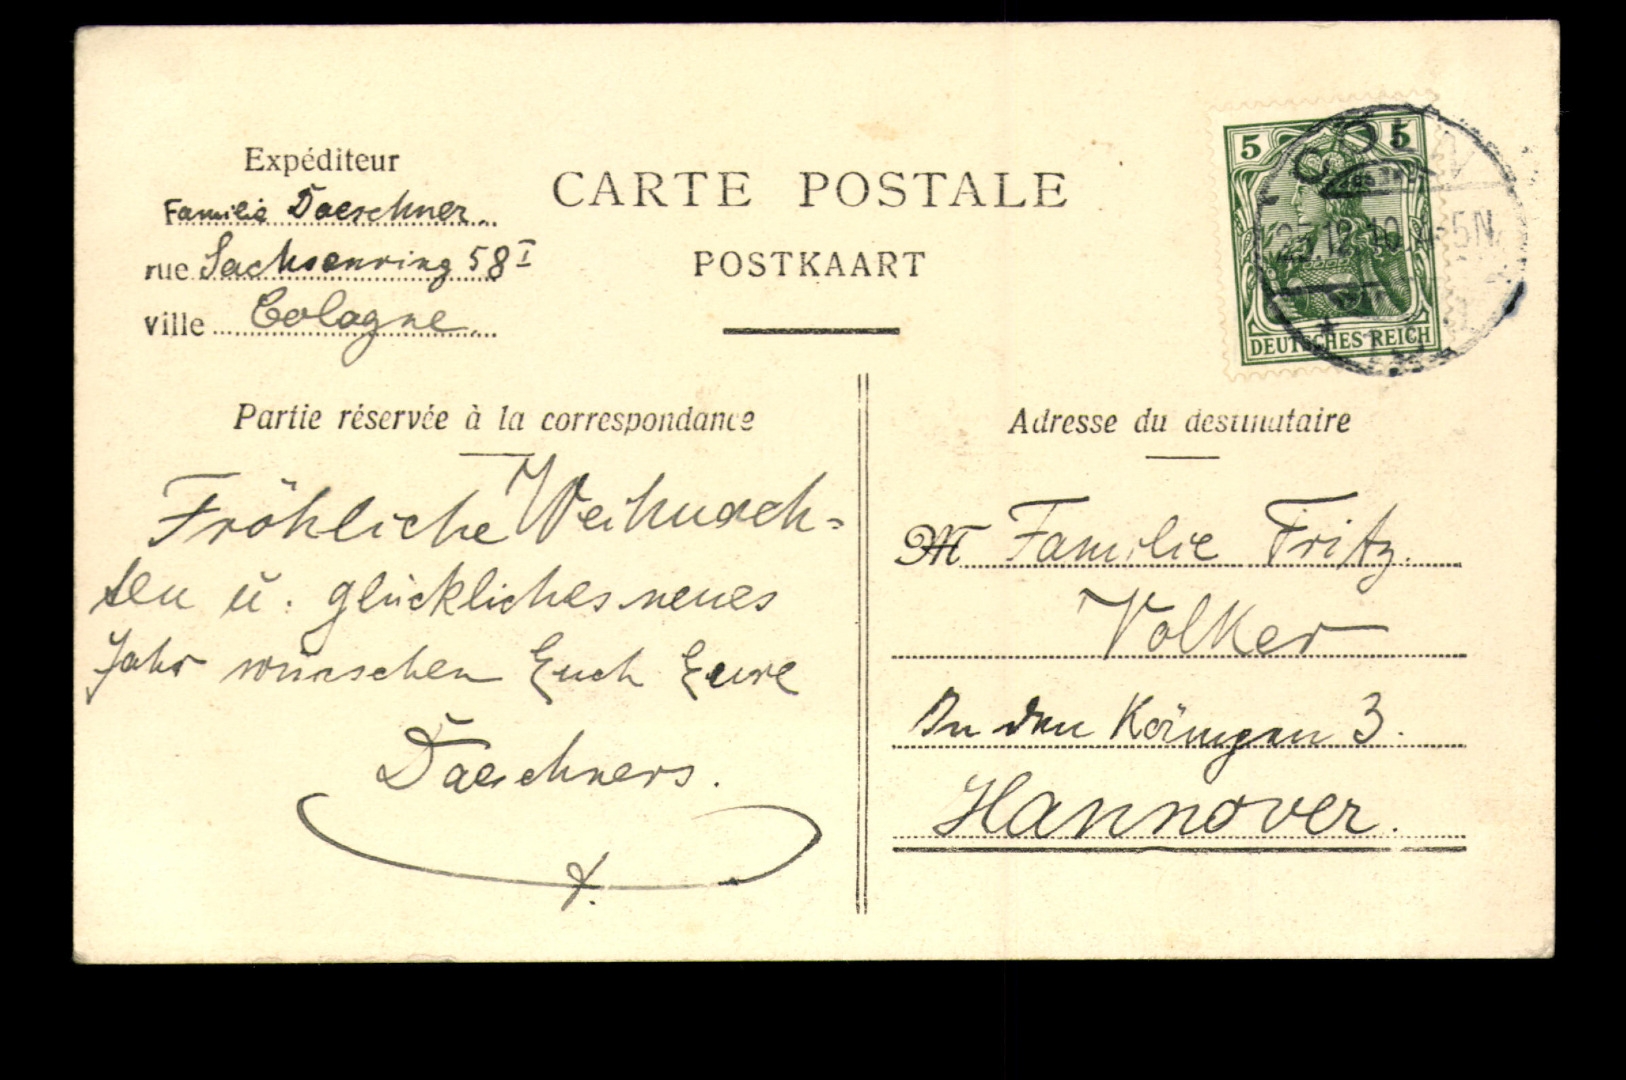 Expéditeur
Familie Daeschner.
rue Sachsenring 58 I
ville Cologne.
CARTE POSTALE
POSTKAART
5 5
23.12.10. 4-5N
DEUTSCHES REICH
Partie réservée à la correspondance
Fröhliche Weihnach=
ten u. glückliches neues
Jahr wünschen Euch Eure
Daeschners.
Adresse du destinataire
M Familie Fritz
Volker
In den 3.
Hannover.